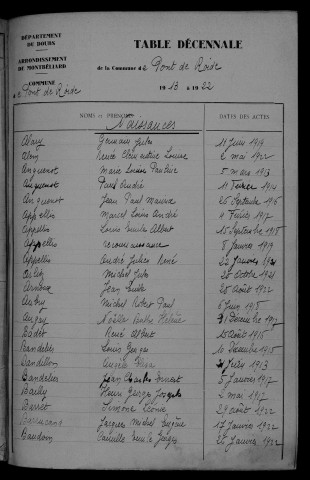 DÉPARTEMENT
DU DOUBS
ARRONDISSEMENT
DE MONTBÉLIARD
COMMUNE
de Pont de Roide
TABLE DÉCENNALE
de la Commune de Pont de Roide
1913 à 1922
NOMS et PRÉNOMS
DATES DES ACTES
Naissances
Germain Jules 11 Juin 1919
René Clémentine Louise 2 mai 1922
Anguenot Marc Louis 5 mars 1913
Anguenot Paul André 11 Février 1914
Anguenot Jean Paul Maurice 26 Septembre 1916
Appellis Marcel Louis André 4 Février 1917
Appellis Louis Emile Albert 15 Septembre 1915
Appellis reconnaissance 8 Janvier 1917
Appellis André Jules René 22 Janvier 1921
Michel Jules 28 Octobre 1921
Jean 28 Août 1922
Aubry Michel Robert Paul 6 Juin 1915
Hélène 31 Décembre 1917
Badot René Albert 25 Août 1916
Bandelier Louis Georges 10 Décembre 1915
1913
Bandelier Jean Charles Ernest 5 Janvier 1917
Bailly Henri Georges Joseph 2 mai 1917
Barret Simone 29 Août 1922
Jacques Michel Eugène 17 Janvier 1922
Baudoin Camille Emile Georges 25 Janvier 1922